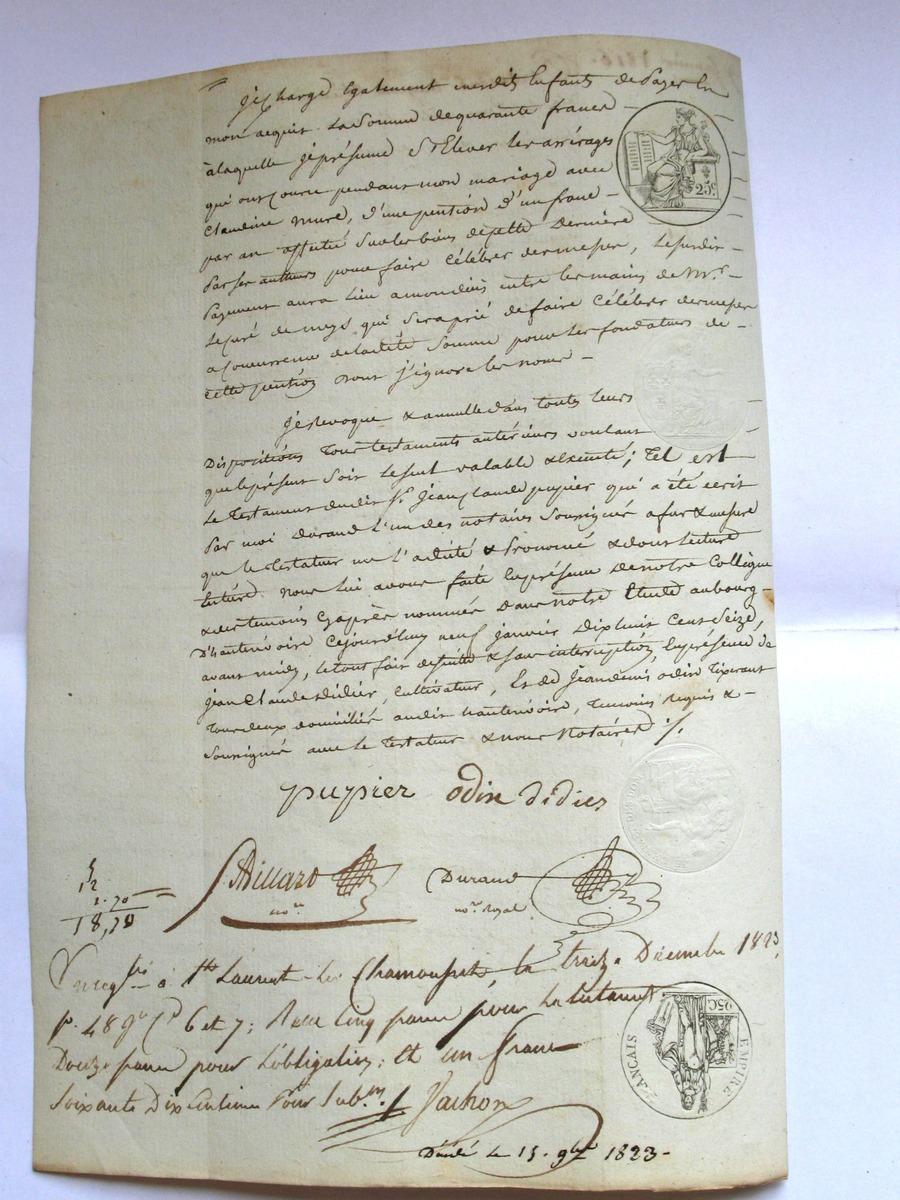 Je charge également mesdits Enfants de payer en
mon acquit la Somme de quarante francs
à laquelle je présume S'Elever les arrérages
qui ont couru pendant mon mariage avec
Claudine mure, d'une pention d'un franc
par an affecté Sur les biens de cette Dernière
Par ses autheurs pour faire Célébrer des messes, Le susdit
Payement aura Lieu entre les mains de Mr.
Le curé de meys qui Sera prié de faire Célébrer des messes
a Concurrence de ladite Somme pour les fondateurs de
cette pention dont j'ignore les noms
Je revoque & annulle dans toutes leurs
Dispositions Tous testaments antérieurs voulant
que le présent Soit Le Seul valable & Executé; Tel est
Le Testament dudit Sr. Jean Claude pupier qui a été écrit
Par moi Durand L'un des notaires Soussignés a fur & mesure
que le Testateur me l'a dicté & Prononcé & dont lecture
Nous lui avons faite En présence De notre Collègue
& des temoins cy après nommés Dans notre Etude au bourg
D'hauterivoire Cejourd'huy neuf janvier Dix huit Cent Seize,
avant midy, le tout fait de suite & Sans interruption, En présence de
jean Claude didier, Cultivateur, Et de Jean denis odin Tixerant
Tous deux domiciliés audit hauterivoire, Temoins requis &
Soussignés avec le Testateur & nous Notaires ./.
pupier odin didier
25c
12
2.70
18,70
Billard Durand
nore nore Royal
Enregistré à St. Laurent-de-Chamousset, le treize Décembre 1823,
fo. 48 Co 6 et 7; Reçu Cinq francs pour le testament
Douze francs pour l'obligation; Et un franc
Soixante Dix Centimes Pour Subon. Vachon
25C
EMPIRE FRANÇAIS
Décédé le 15 9bre 1823-